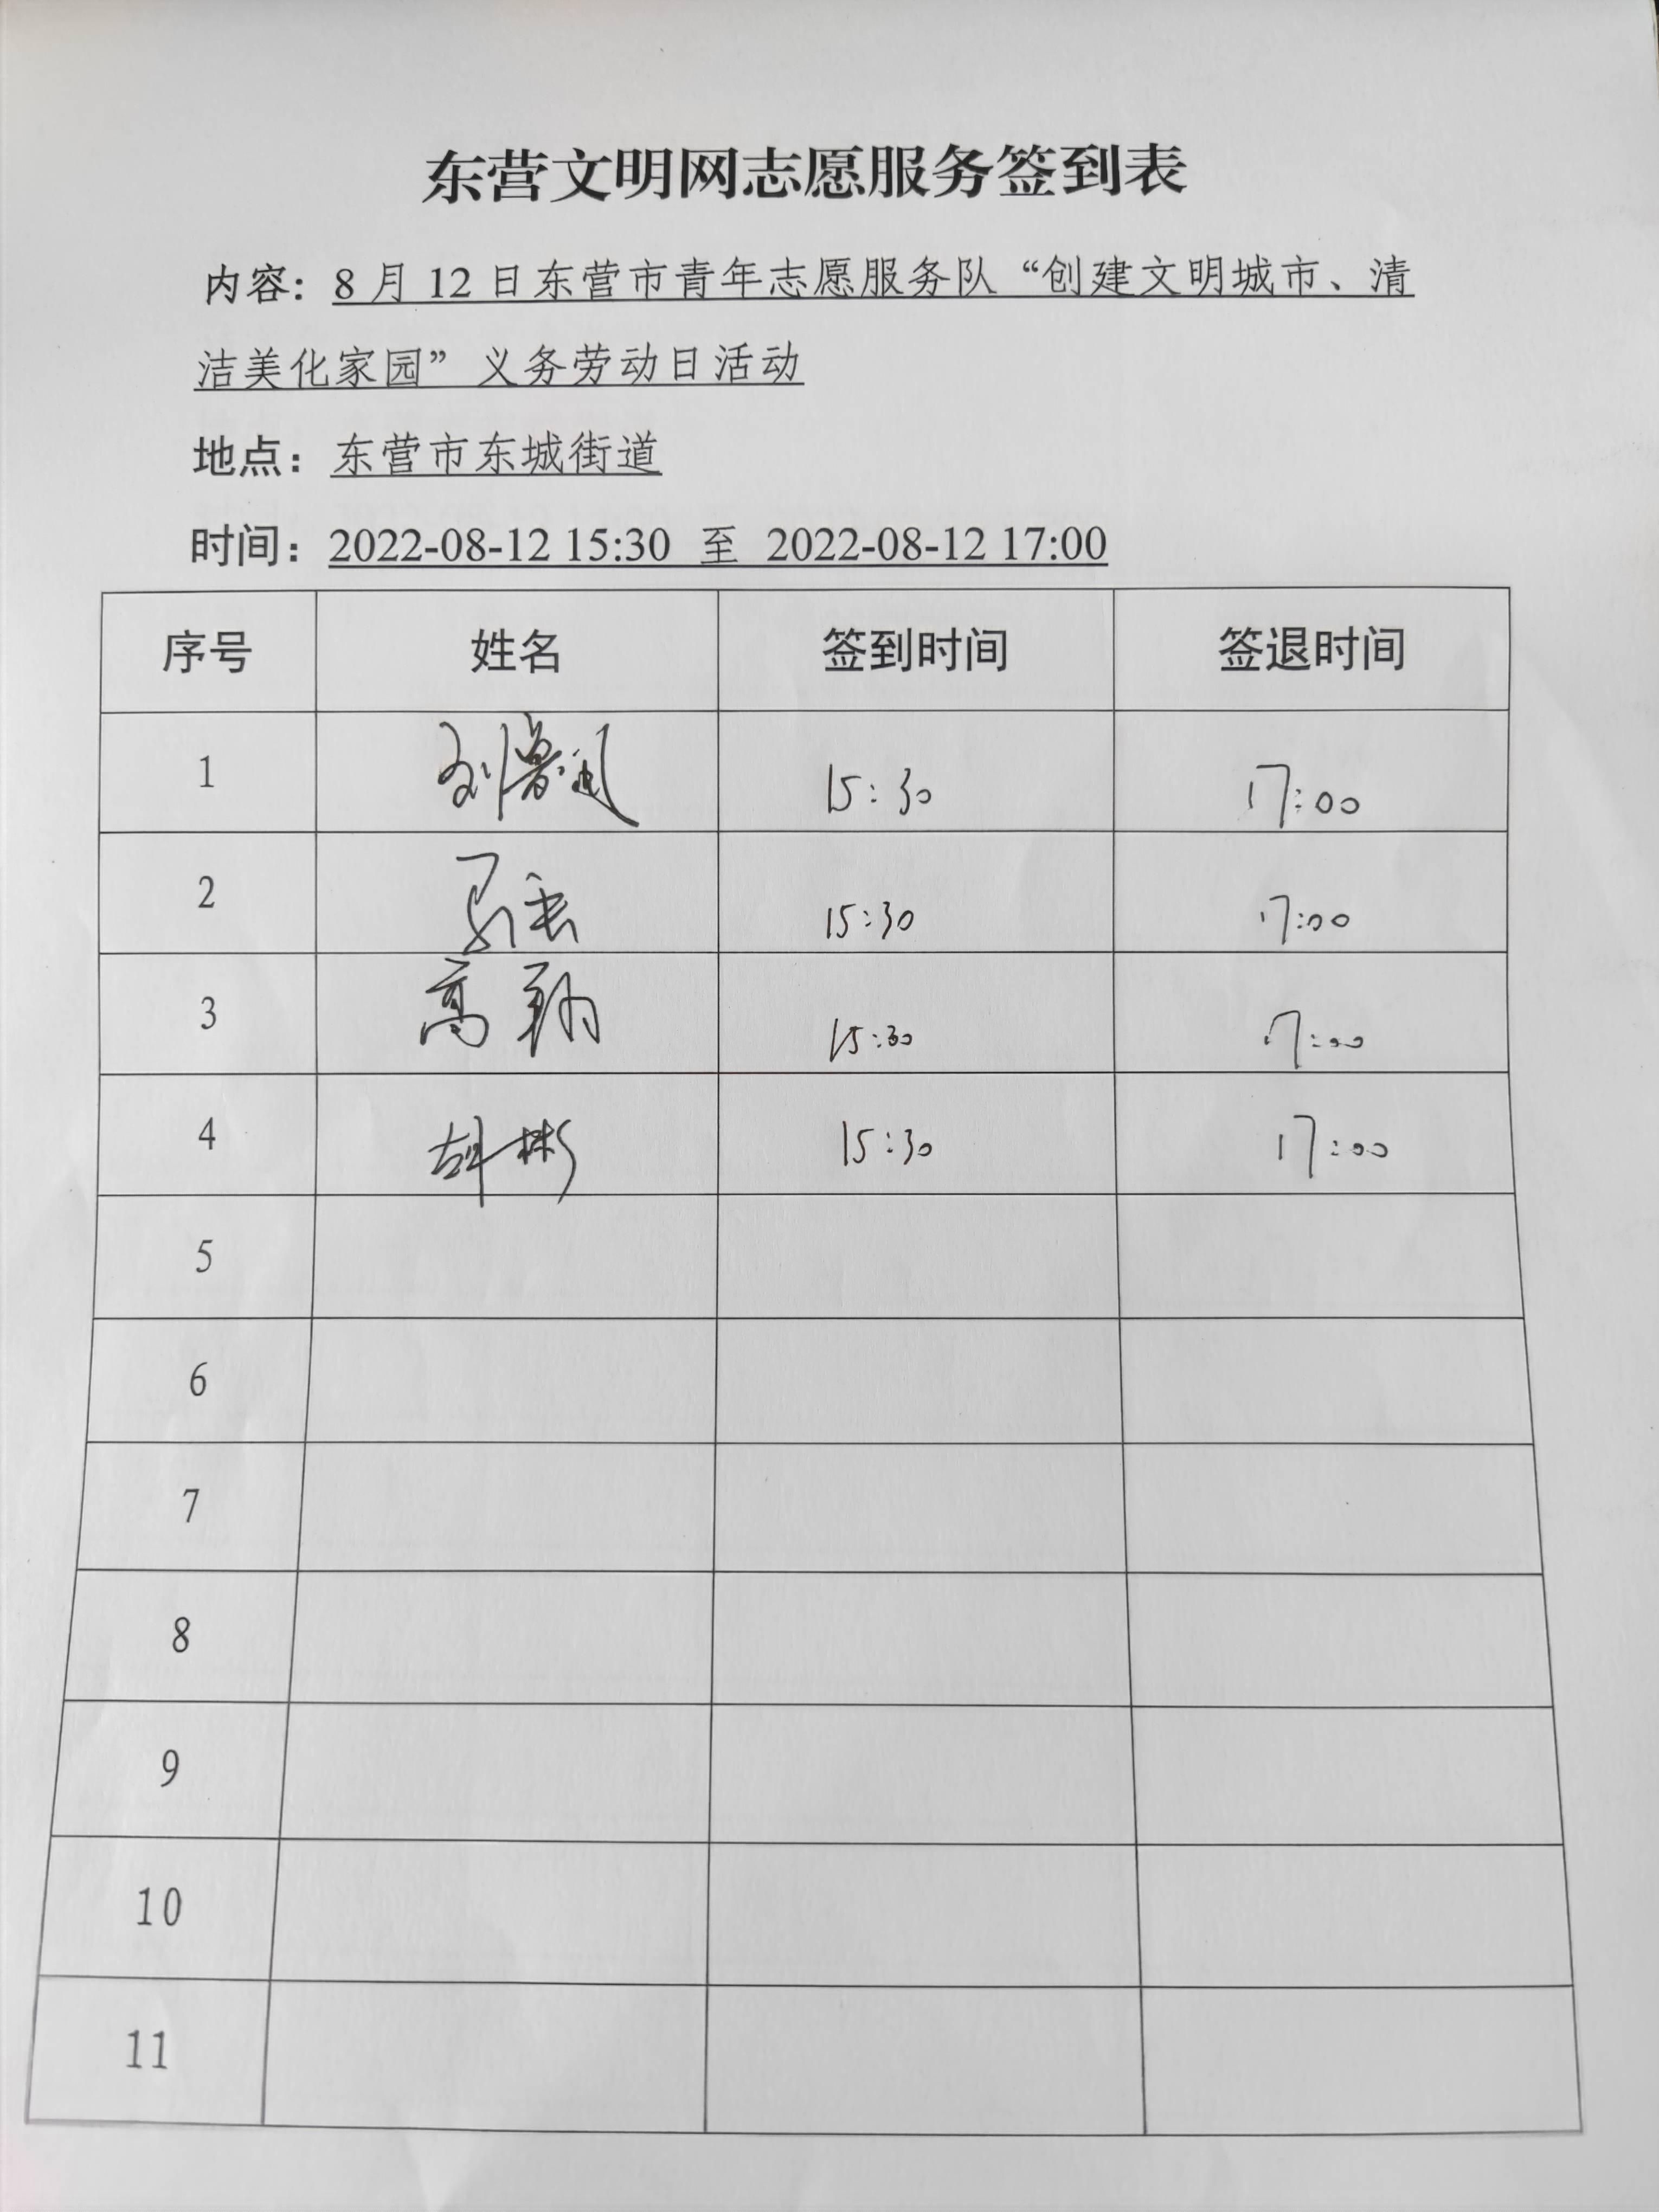 东营文明网志愿服务签到表
内容：8月12日东营市青年志愿服务队“创建文明城市、清
洁美化家园”义务劳动日活动
地点：东营市东城街道
时间：2022-08-12 15:30 至 2022-08-12 17:00
序号 姓名 签到时间 签退时间
1 刘 15:30 17:00
2 15:30 17:00
3 高翔 15:30 17:00
4 胡彬 15:30 17:00
5
6
7
8
9
10
11